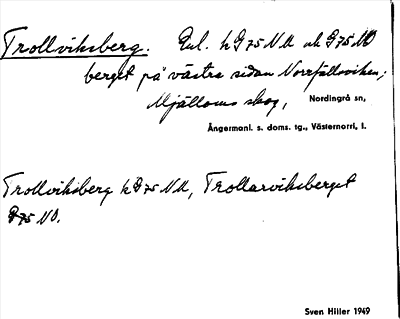 Trollviksberg. Enl. k G 75 NU ok G 75 NO
berget på västra sidan Norrfällsviken;
Mjälloms skog, Nordingrå sn,
Ångermanl. s. doms. tg., Västernorrl, l.
Trollviksberg k G 75 NU, Trollarviksberget
G 75 NO.
Sven Hiller 1949